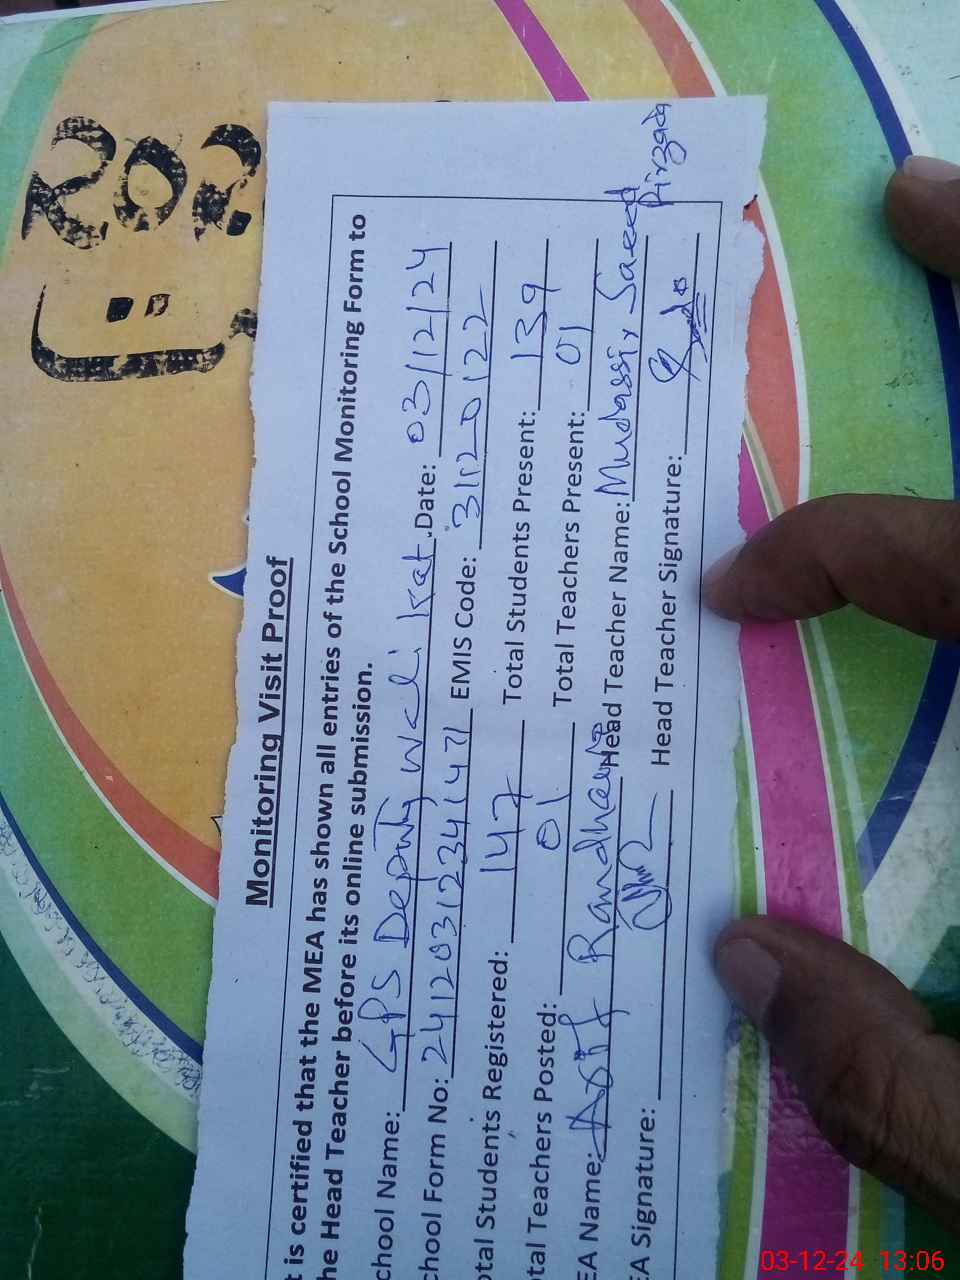 Monitoring Visit Proof
t is certified that the MEA has shown all entries of the School Monitoring Form to
he Head Teacher before its online submission.
chool Name: GPS Deputy Wali Kat .Date: 03/12/24
chool Form No: 24120312341471 EMIS Code: 31120122
otal Students Registered: 147 Total Students Present: 139
otal Teachers Posted: 01 Total Teachers Present: 01
EA Name: Asif Randhawa Head Teacher Name: Mudassir Saeed Pirzada
EA Signature: Head Teacher Signature:
202
03-12-24 13:06